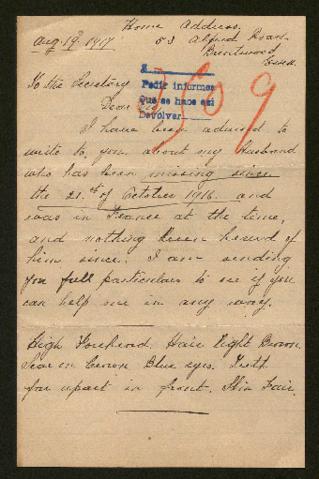 Home Address.
Aug 19th 1917
53 Alfred Road
Brentwood
Essex
To the Secretary
Dear Sir
Pedir informes
Que se hace así
Devolver
I have been advised to
write to you about my Husband
who has been missing since
the 21st of October 1916. and
was in France at the time,
and nothing been heard of
him since. I am sending
you full particulars to see if you
can help me in any way.
High Forehead, Hair Light Brown
Scar on Crown Blue eyes. Teeth
far apart in front. Skin Fair.